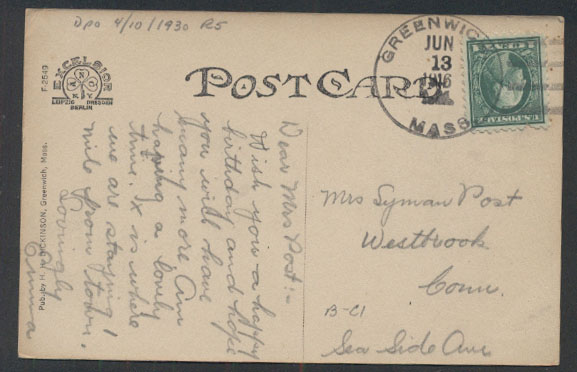 Dpo 4/10/1930 R5
F-2549
EXCELSIOR
A N C
N.Y.
LEIPZIG DRESDEN
BERLIN
POST CARD
GREENWICH
JUN
13
1916
MASS
U.S. POSTAGE
Pub. by H. DICKINSON, Greenwich, Mass.
Dear Mrs Post:-
Wish you a happy
birthday and hope
you will have
many more Am
having a lovely
time. X is where
we are staying 1
mile from town.
Lovingly
Emma
Mrs Syman Post
Westbrook
Conn.
B-C1
Sea Side Ave